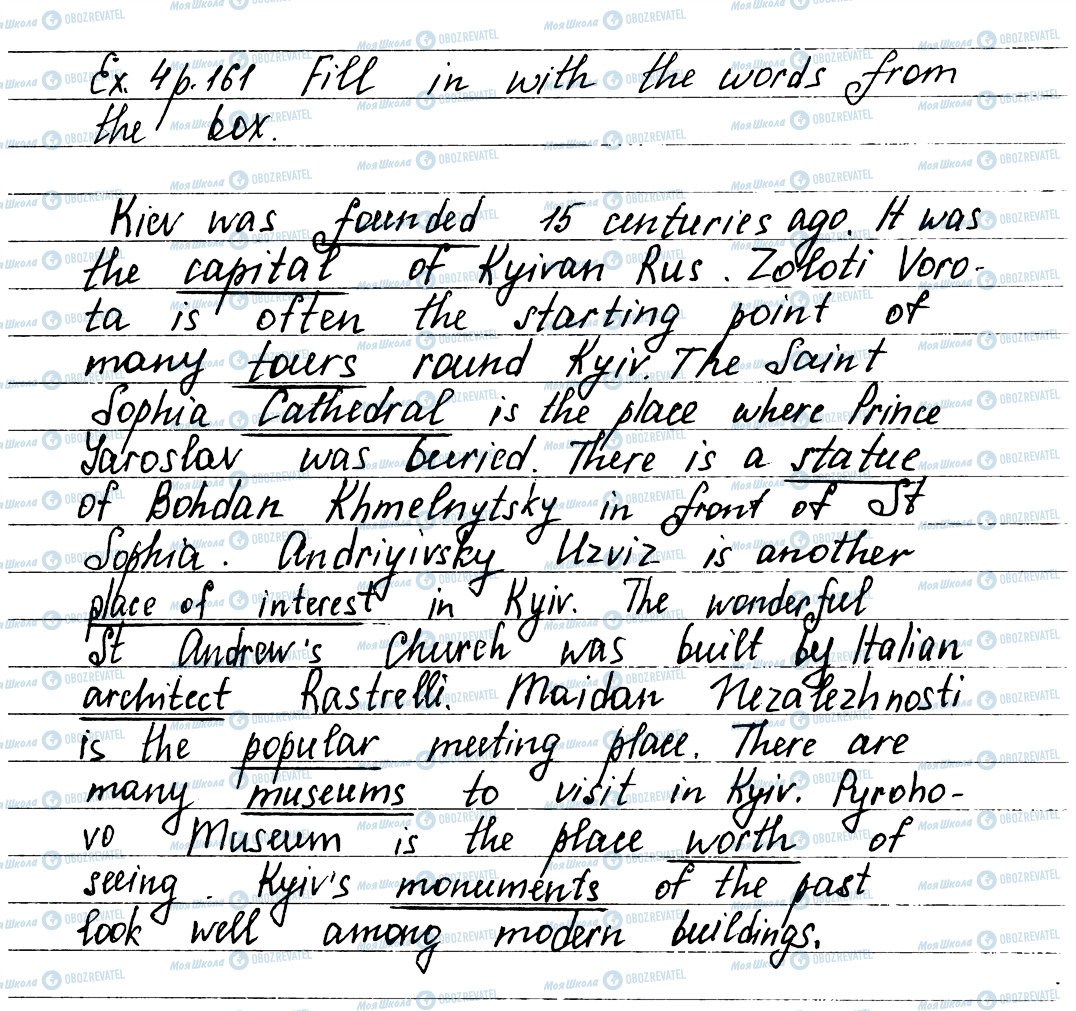 Ex. 4 p. 161 Fill in with the words from
the box.
Kiev was founded 15 centuries ago. It was
the capital of Kyivan Rus. Zoloti Voro-
ta is often the starting point of
many tours round Kyiv. The Saint
Sophia Cathedral is the place where Prince
Yaroslav was buried. There is a statue
of Bohdan Khmelnytsky in front of St
Sophia. Andriyivsky Uzviz is another
place of interest in Kyiv. The wonderful
St Andrew's Church was built by Italian
architect Rastrelli. Maidan Nezalezhnosti
is the popular meeting place. There are
many museums to visit in Kyiv. Pyroho-
vo Museum is the place worth of
seeing. Kyiv's monuments of the past
look well among modern buildings.
Моя Школа OBOZREVATEL